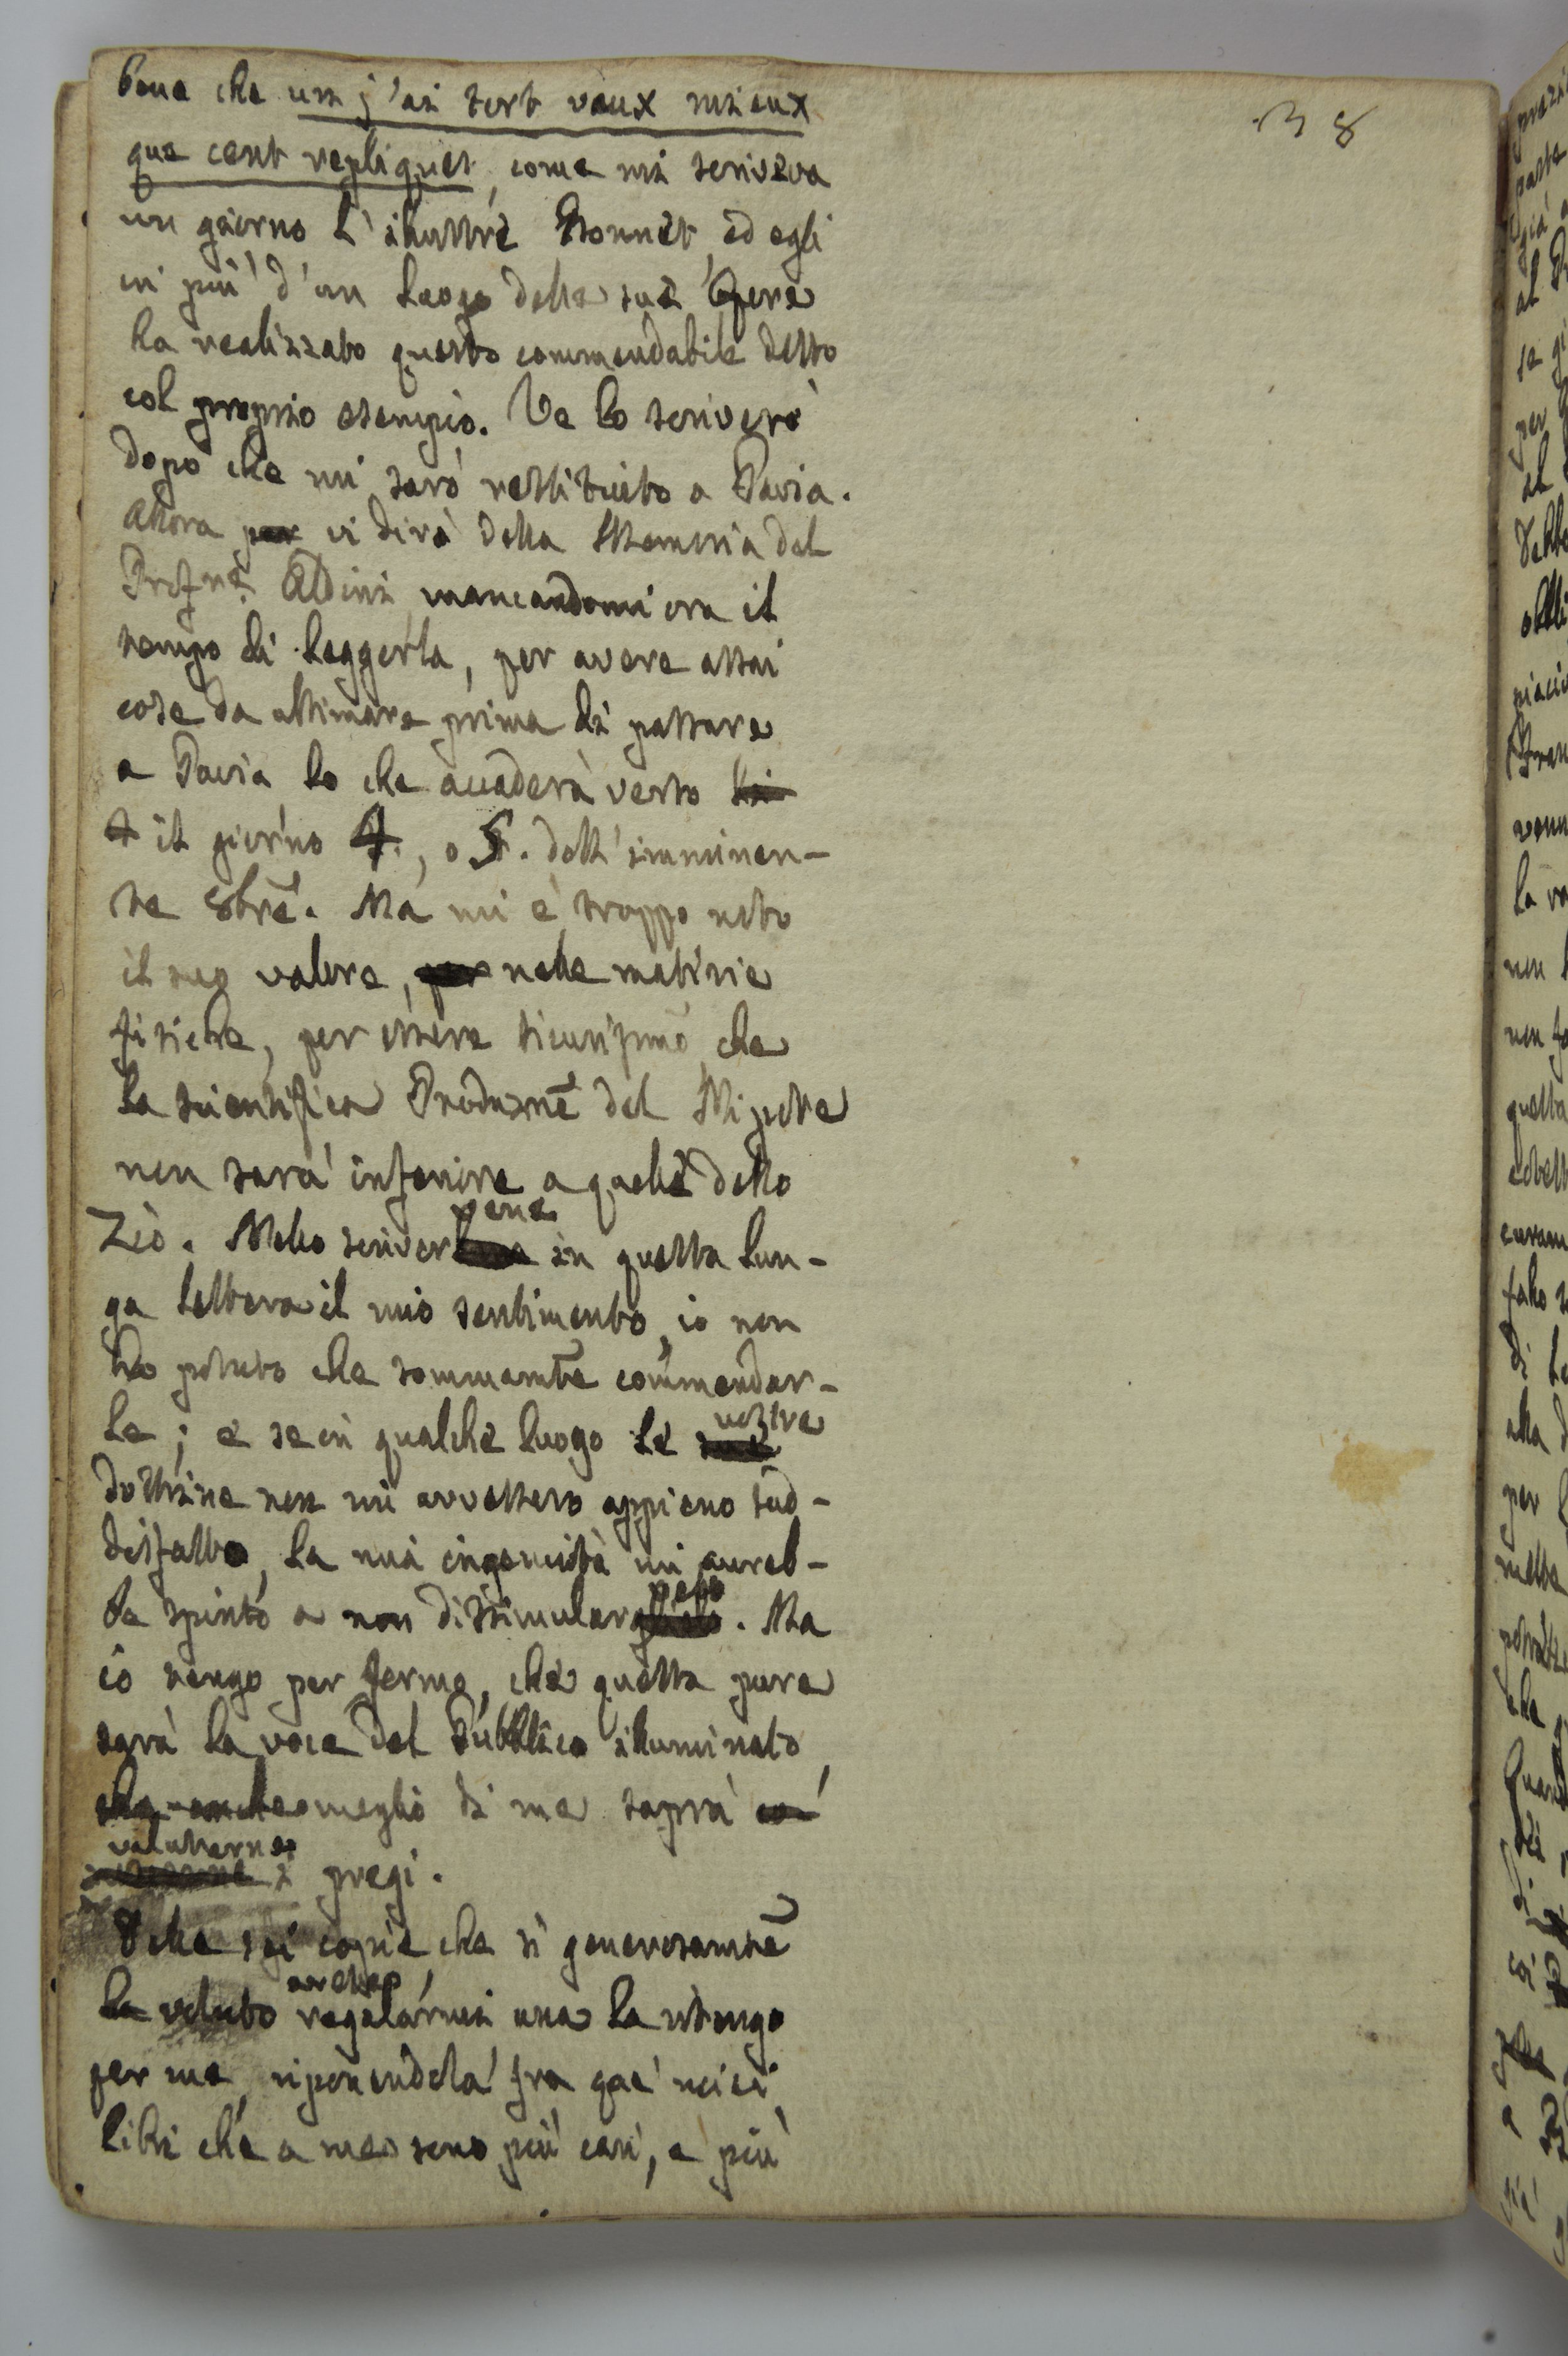 38
bene che un j'ai tort vaux mieux
que cent repliques, come mi scriveva
un giorno l'illustre Bonnet, ed egli
in più d'un luogo delle sue Opere
ha realizzato questo commendabile detto
col proprio esempio. Ve lo scriverò
dopo che mi sarò restituito a Pavia.
Allora per vi dirò della Memoria del
Profre. Aldini mancandomi ora il
tempo di leggerla, per avere assai
cose da ultimare prima di passare
a Pavia lo che accaderà verso li
4 il giorno 4., o 5. dell'imminen-
te 8bre. Ma mi è troppo noto
il suo valore, per nelle materie
fisiche, per essere sicurissimo che
la scientifica Produzne del Nipote
non sarà inferiore a quelle dello
Zio. Nello scriver vene in questa lun-
ga lettera il mio sentimento, io non
ho potuto che sommamte commendar-
le; e se in qualche luogo le vostre
dottrine non mi avessero appieno sod-
disfatto, la mia ingenuità mi avreb-
be spinto a non dissimular velo. Ma
io tengo per fermo, che questa pure
sarà la voce del Pubblico illuminato,
che anche meglio di me saprà
valutarne i pregi.
Delle sei copie, che sì generosamte
ha voluto avete regalarmi una la ritengo
per me, riponendola fra que' miei
libri che a me sono più cari, e più